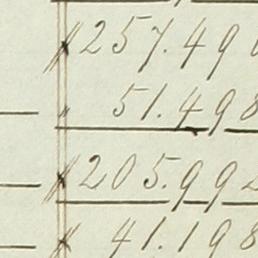 257.490
51.498
205.992
41.198